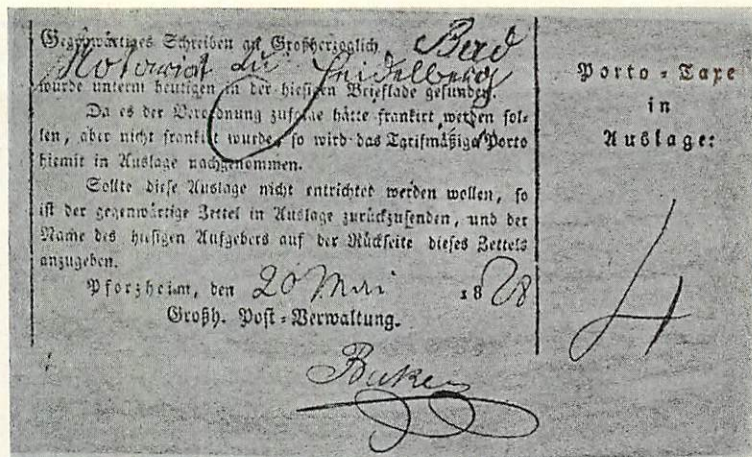 Gegenwärtiges Schreiben an Großherzoglich Bad
Notariat zu Heidelberg
wurde unterm heutigen in der hiesigen Brieflade gefunden.
Da es der Verordnung zufolge hätte frankirt werden sol-
len, aber nicht frankirt wurde, so wird das Tarifmäßige Porto
hiemit in Auslage nachgenommen.
Sollte diese Auslage nicht entrichtet werden wollen, so
ist der gegenwärtige Zettel in Auslage zurückzusenden, und der
Name des hiesigen Aufgebers auf der Rückseite dieses Zettels
anzugeben.
Pforzheim, den 20 Mai 1828
Großh. Post-Verwaltung.
Porto-Taxe
in
Auslage:
4